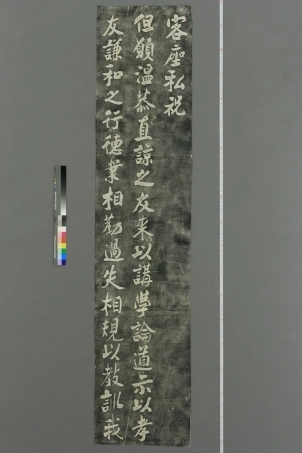 客座私祝
但願溫恭直諒之友来以講學論道示以孝
友謙和之行德業相勸過失相規以教訓我